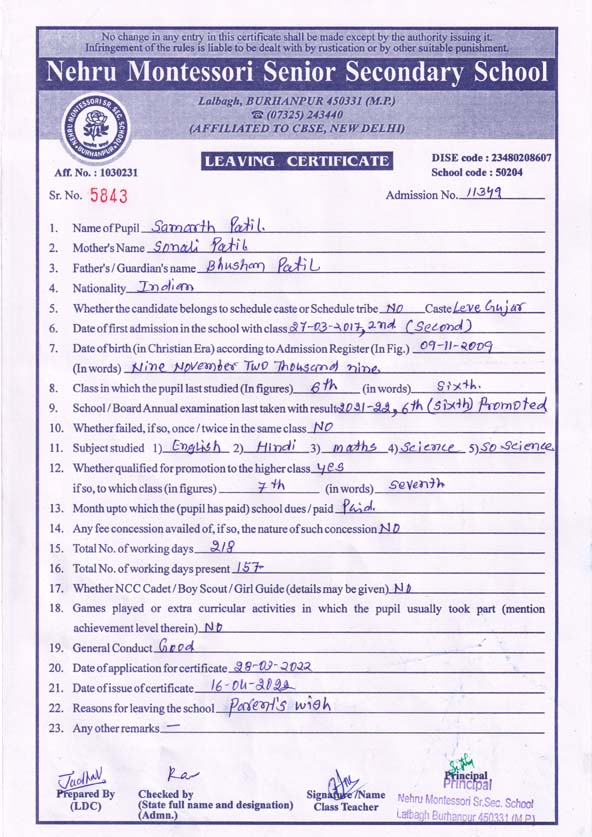 No change in any entry in this certificate shall be made except by the authority issuing it.
Infringement of the rules is liable to be dealt with by rustication or by other suitable punishment.
Nehru Montessori Senior Secondary School
Lalbagh, BURHANPUR 450331 (M.P.)
☎ (07325) 243440
(AFFILIATED TO CBSE, NEW DELHI)
NEHRU MONTESSORI SR. SEC. SCHOOL
BURHANPUR
LEAVING CERTIFICATE
DISE code : 23480208607
Aff. No. : 1030231 School code : 50204
Sr. No. 5843 Admission No. 11349
1. Name of Pupil Samarth Patil.
2. Mother's Name Sonali Patil
3. Father's / Guardian's name Bhushan Patil
4. Nationality Indian
5. Whether the candidate belongs to schedule caste or Schedule tribe NO Caste Leve Gujar
6. Date of first admission in the school with class 27-03-2017, 2nd (Second)
7. Date of birth (in Christian Era) according to Admission Register (In Fig.) 09-11-2009
(In words) Nine November Two Thousand nine.
8. Class in which the pupil last studied (In figures) 6th (in words) Sixth.
9. School / Board Annual examination last taken with result 2021-22, 6th (Sixth) Promoted
10. Whether failed, if so, once / twice in the same class NO
11. Subject studied 1) English 2) Hindi 3) maths 4) Science 5) SO Science
12. Whether qualified for promotion to the higher class yes
if so, to which class (in figures) 7th (in words) Seventh
13. Month upto which the (pupil has paid) school dues / paid Paid.
14. Any fee concession availed of, if so, the nature of such concession NO
15. Total No. of working days 218
16. Total No. of working days present 157
17. Whether NCC Cadet / Boy Scout / Girl Guide (details may be given) NO
18. Games played or extra curricular activities in which the pupil usually took part (mention
achievement level therein) NO
19. General Conduct Good
20. Date of application for certificate 28-03-2022
21. Date of issue of certificate 16-04-2022
22. Reasons for leaving the school Parent's wish
23. Any other remarks —
Jadhav
Prepared By
(LDC)
Checked by
(State full name and designation)
(Admn.)
Signature /Name
Class Teacher
Principal
Principal
Nehru Montessori Sr.Sec. School
Lalbagh Burhanpur 450331 (M.P.)